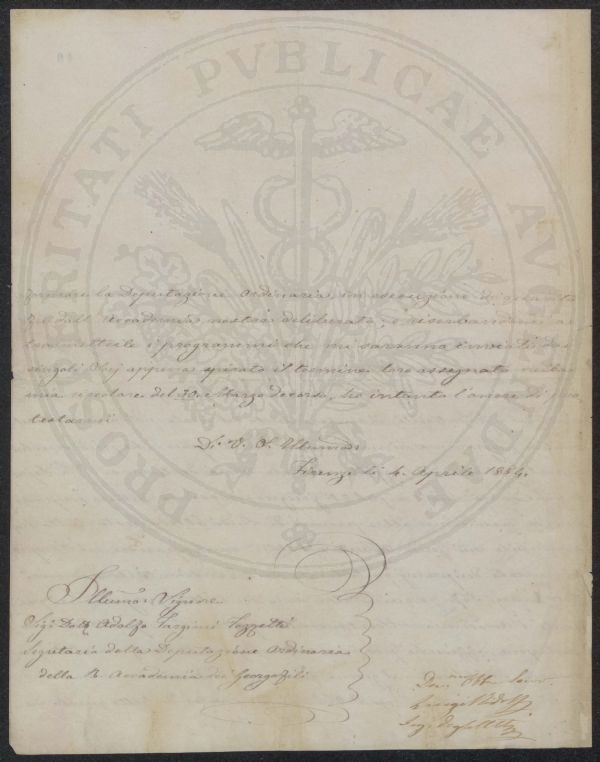 PROSPERITATI PVBLICAE AVGENDAE
la Deputazione Ordinaria, in esecuzione di quanto
dall' Accademia nostra deliberato, e riserbandomi a
trasmetterle i programmi che mi saranno inviati da
singoli appena spirato il termine loro assegnato nella
mia circolare del 30. Marzo decorso, ho intanto l'onore di pro
testarmi
Di V. S. Illuma
Firenze li 4. Aprile 1864.
Illumo. Signore
Sigr. Dott. Adolfo Targioni Tozzetti
Segretario della Deputazione Ordinaria
della R. Accademia dei Georgofili
Devmo Obb Serv.